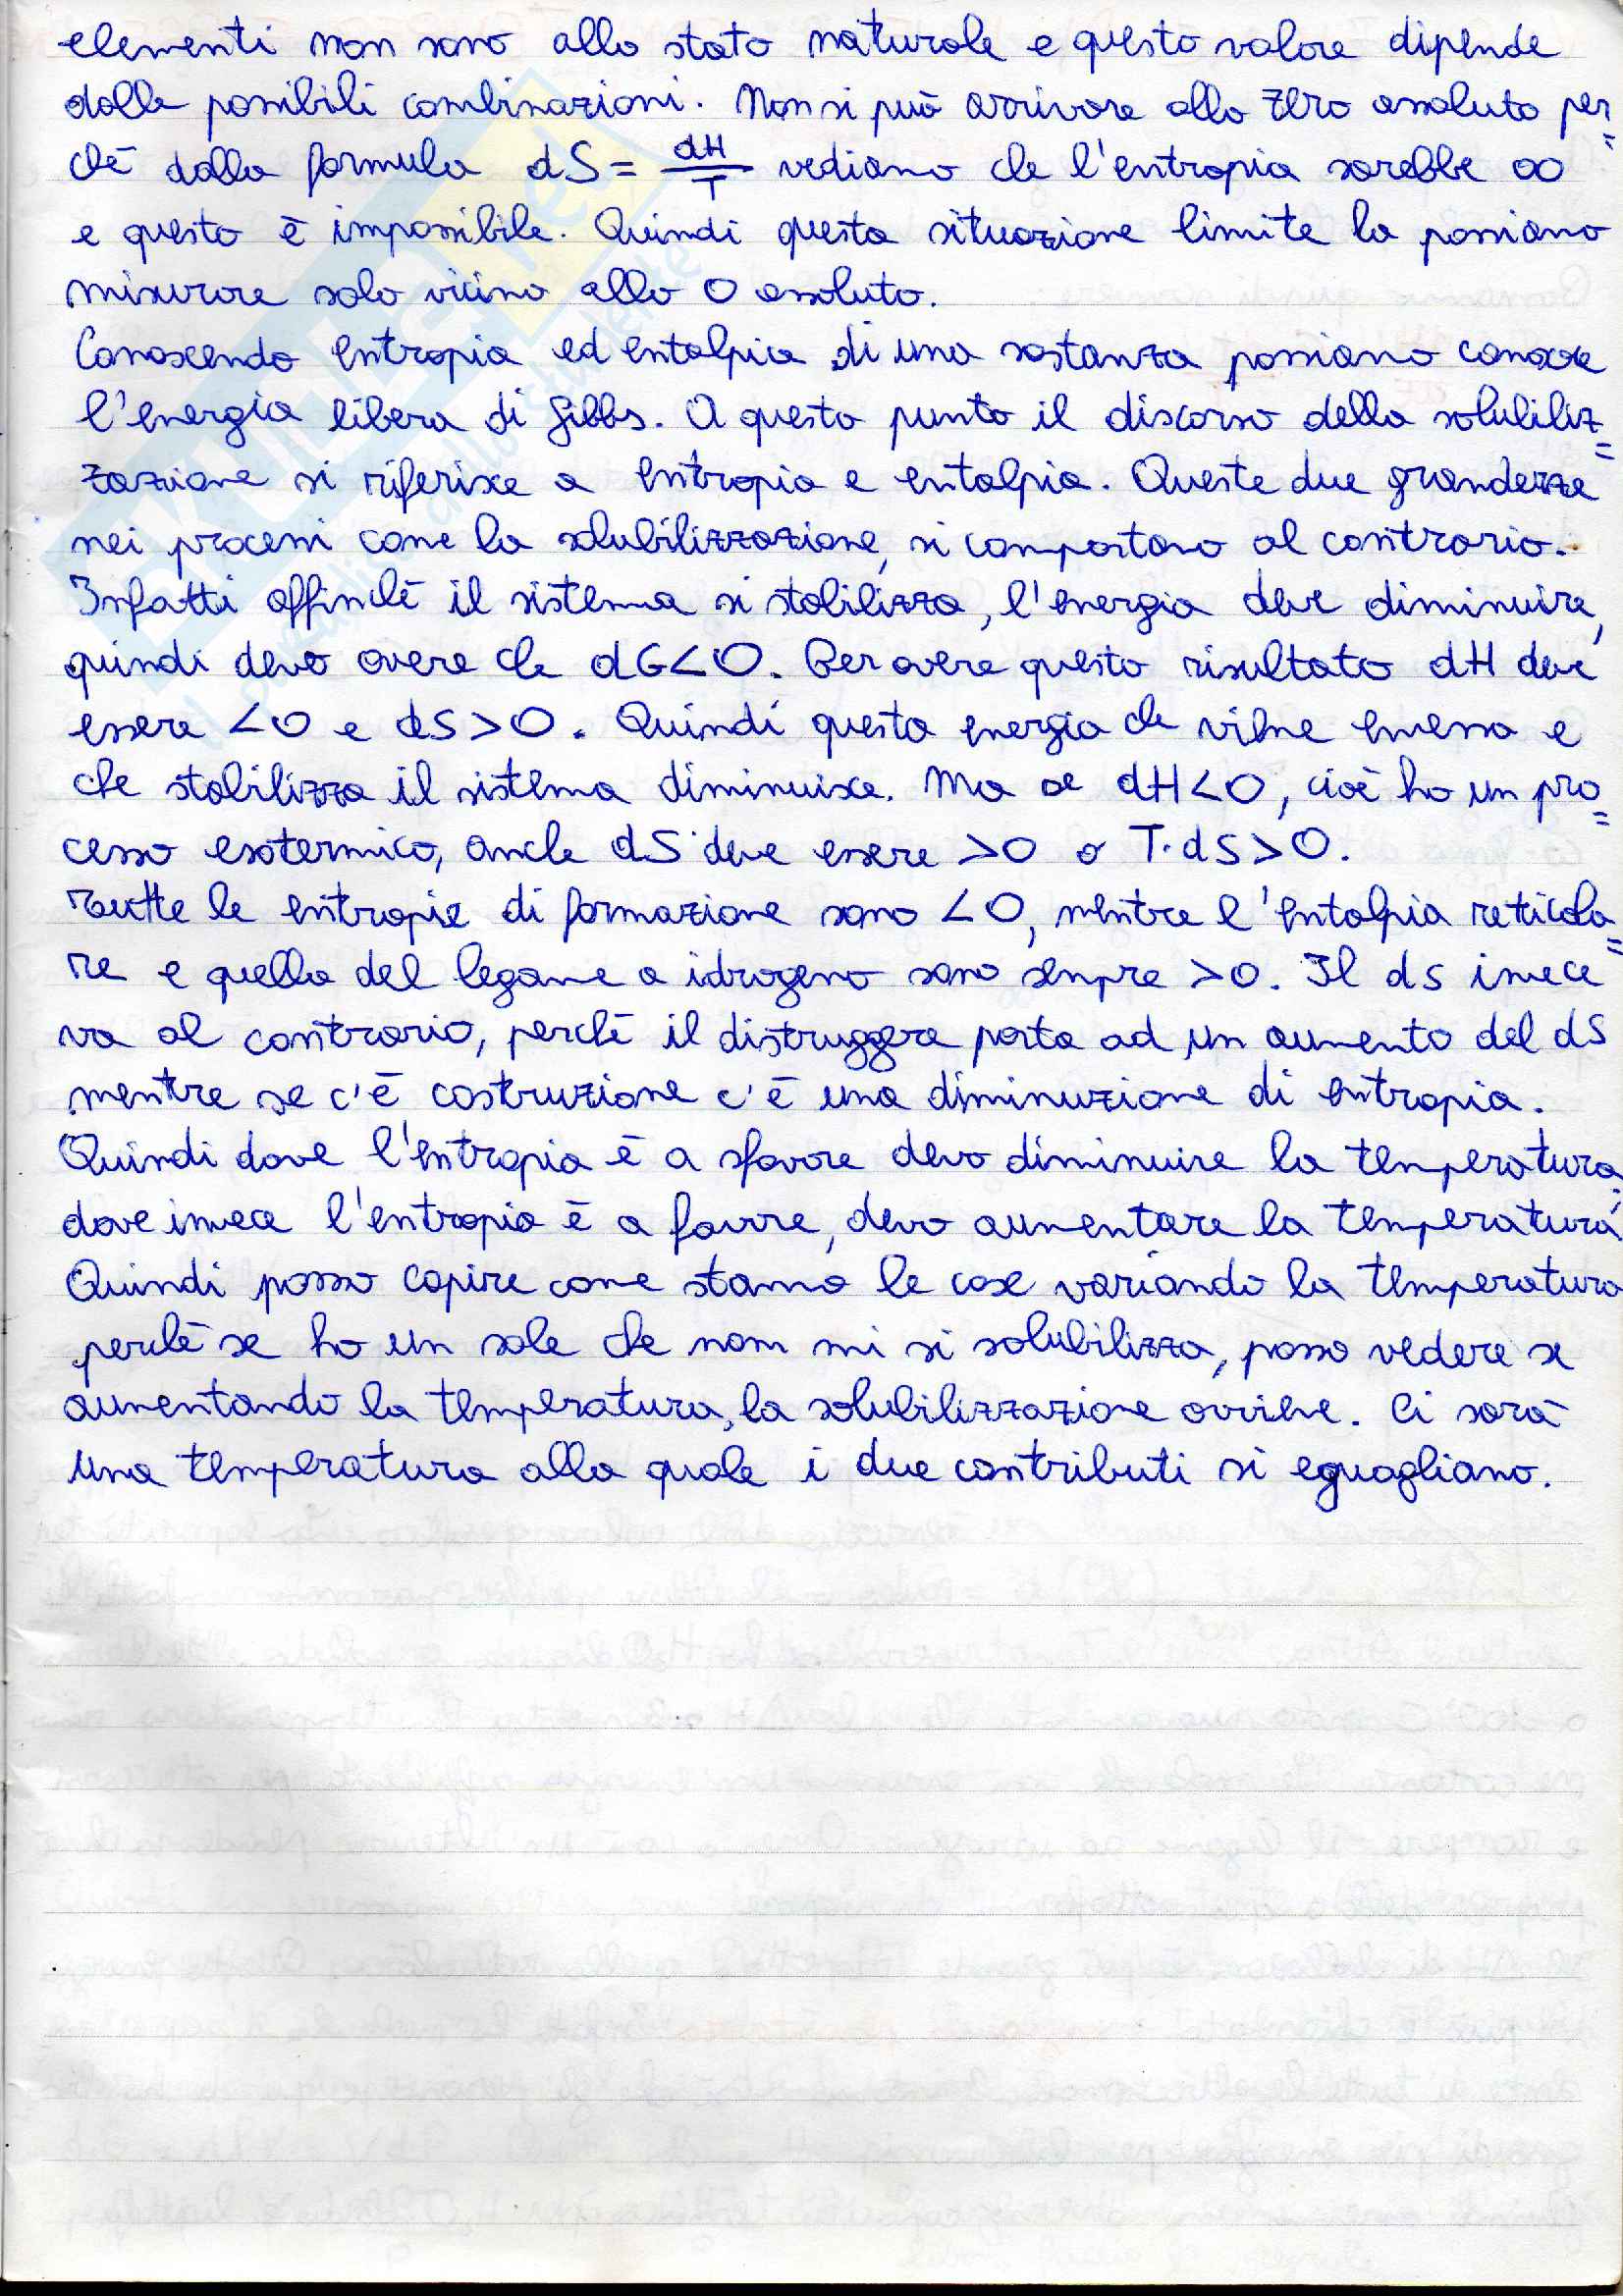 elementi non sono allo stato naturale e questo valore dipende
dalle possibili combinazioni. Non si può arrivare allo zero assoluto per=
chè dalla formula dS = dH/T vediamo che l'entropia sarebbe ∞
e questo è impossibile. Quindi questa situazione limite la possiamo
misurare solo vicino allo 0 assoluto.
Conoscendo entropia ed entalpia di una sostanza possiamo conoscere
l'energia libera di Gibbs. A questo punto il discorso della solubiliz=
zazione si riferisce a entropia e entalpia. Queste due grandezze
nei processi come la solubilizzazione, si comportano al contrario.
Infatti affinchè il sistema si stabilizza, l'energia deve diminuire,
quindi devo avere che dG<0. Per avere questo risultato dH deve
essere <0 e dS>0. Quindi questa energia che viene emessa e
che stabilizza il sistema diminuisce. Ma se dH<0, cioè ho un pro=
cesso esotermico, anche dS deve essere >0 o T·dS>0.
Tutte le entropie di formazione sono <0, mentre l'entalpia reticola=
re e quella del legame a idrogeno sono sempre >0. Il dS invece
va al contrario, perchè il distruggere porta ad un aumento del dS
mentre se c'è costruzione c'è una diminuzione di entropia.
Quindi dove l'entropia è a sfavore devo diminuire la temperatura,
dove invece l'entropia è a favore, devo aumentare la temperatura.
Quindi posso capire come stanno le cose variando la temperatura
perchè se ho un sale che non mi si solubilizza, posso vedere se
aumentando la temperatura, la solubilizzazione avviene. Ci sarà
una temperatura alla quale i due contributi si eguagliano.